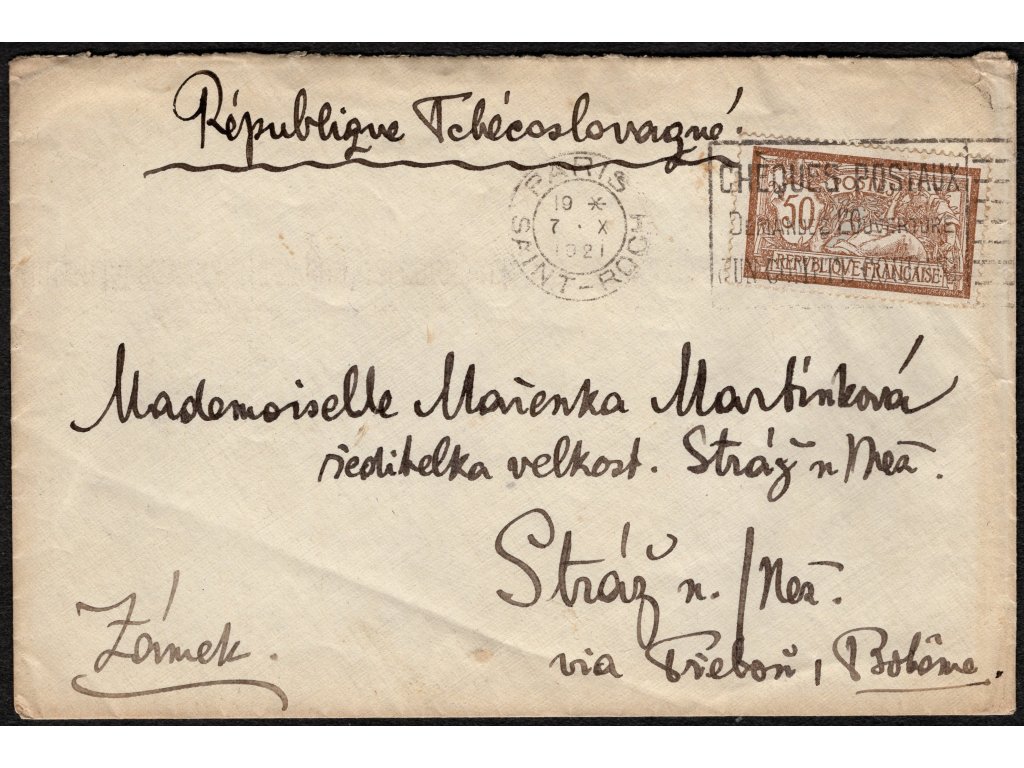 République Tchécoslovaqué.
PARIS
19 *
7 · X
1921
SAINT-ROCH
CHEQUES POSTAUX
DEMANDEZ L'OUVERTURE
50
REPUBLIQUE FRANCAISE
Mademoiselle Mařenka Martínková
ředitelka velkost. Stráž n/Než.
Stráž n./Než.
Zámek.
via Třeboň, Bohême.